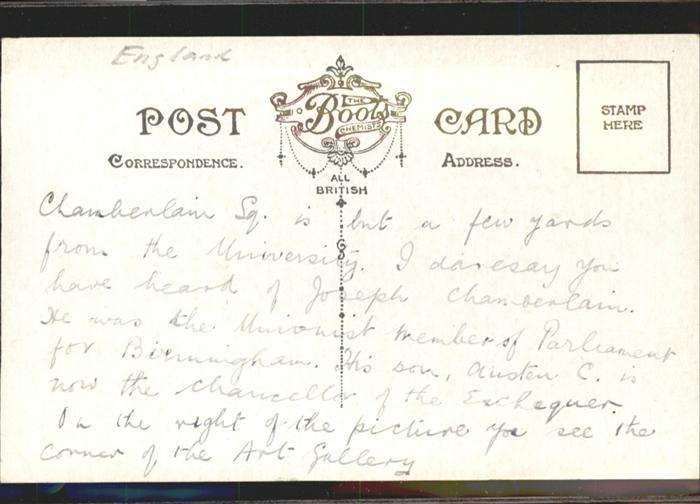 England
POST CARD
THE
Boots
CHEMISTS
STAMP
HERE
CORRESPONDENCE. ADDRESS.
ALL
BRITISH
Chamberlain Sq. is but a few yards
from the University. I daresay you
have heard of Joseph Chamberlain.
He was the Unionist member of Parliament
for Birmingham. His son, Austen C. is
now the Chancellor of the Exchequer.
On the right of the picture you see the
corner of the Art Gallery